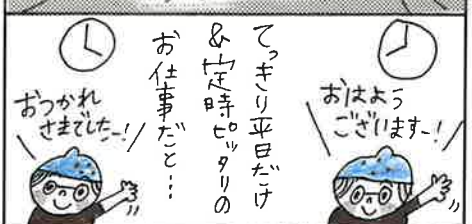 おはよう
ございますー!
てっきり平日だけ
&定時ピッタリの
お仕事だと…
おつかれ
さまでしたー!